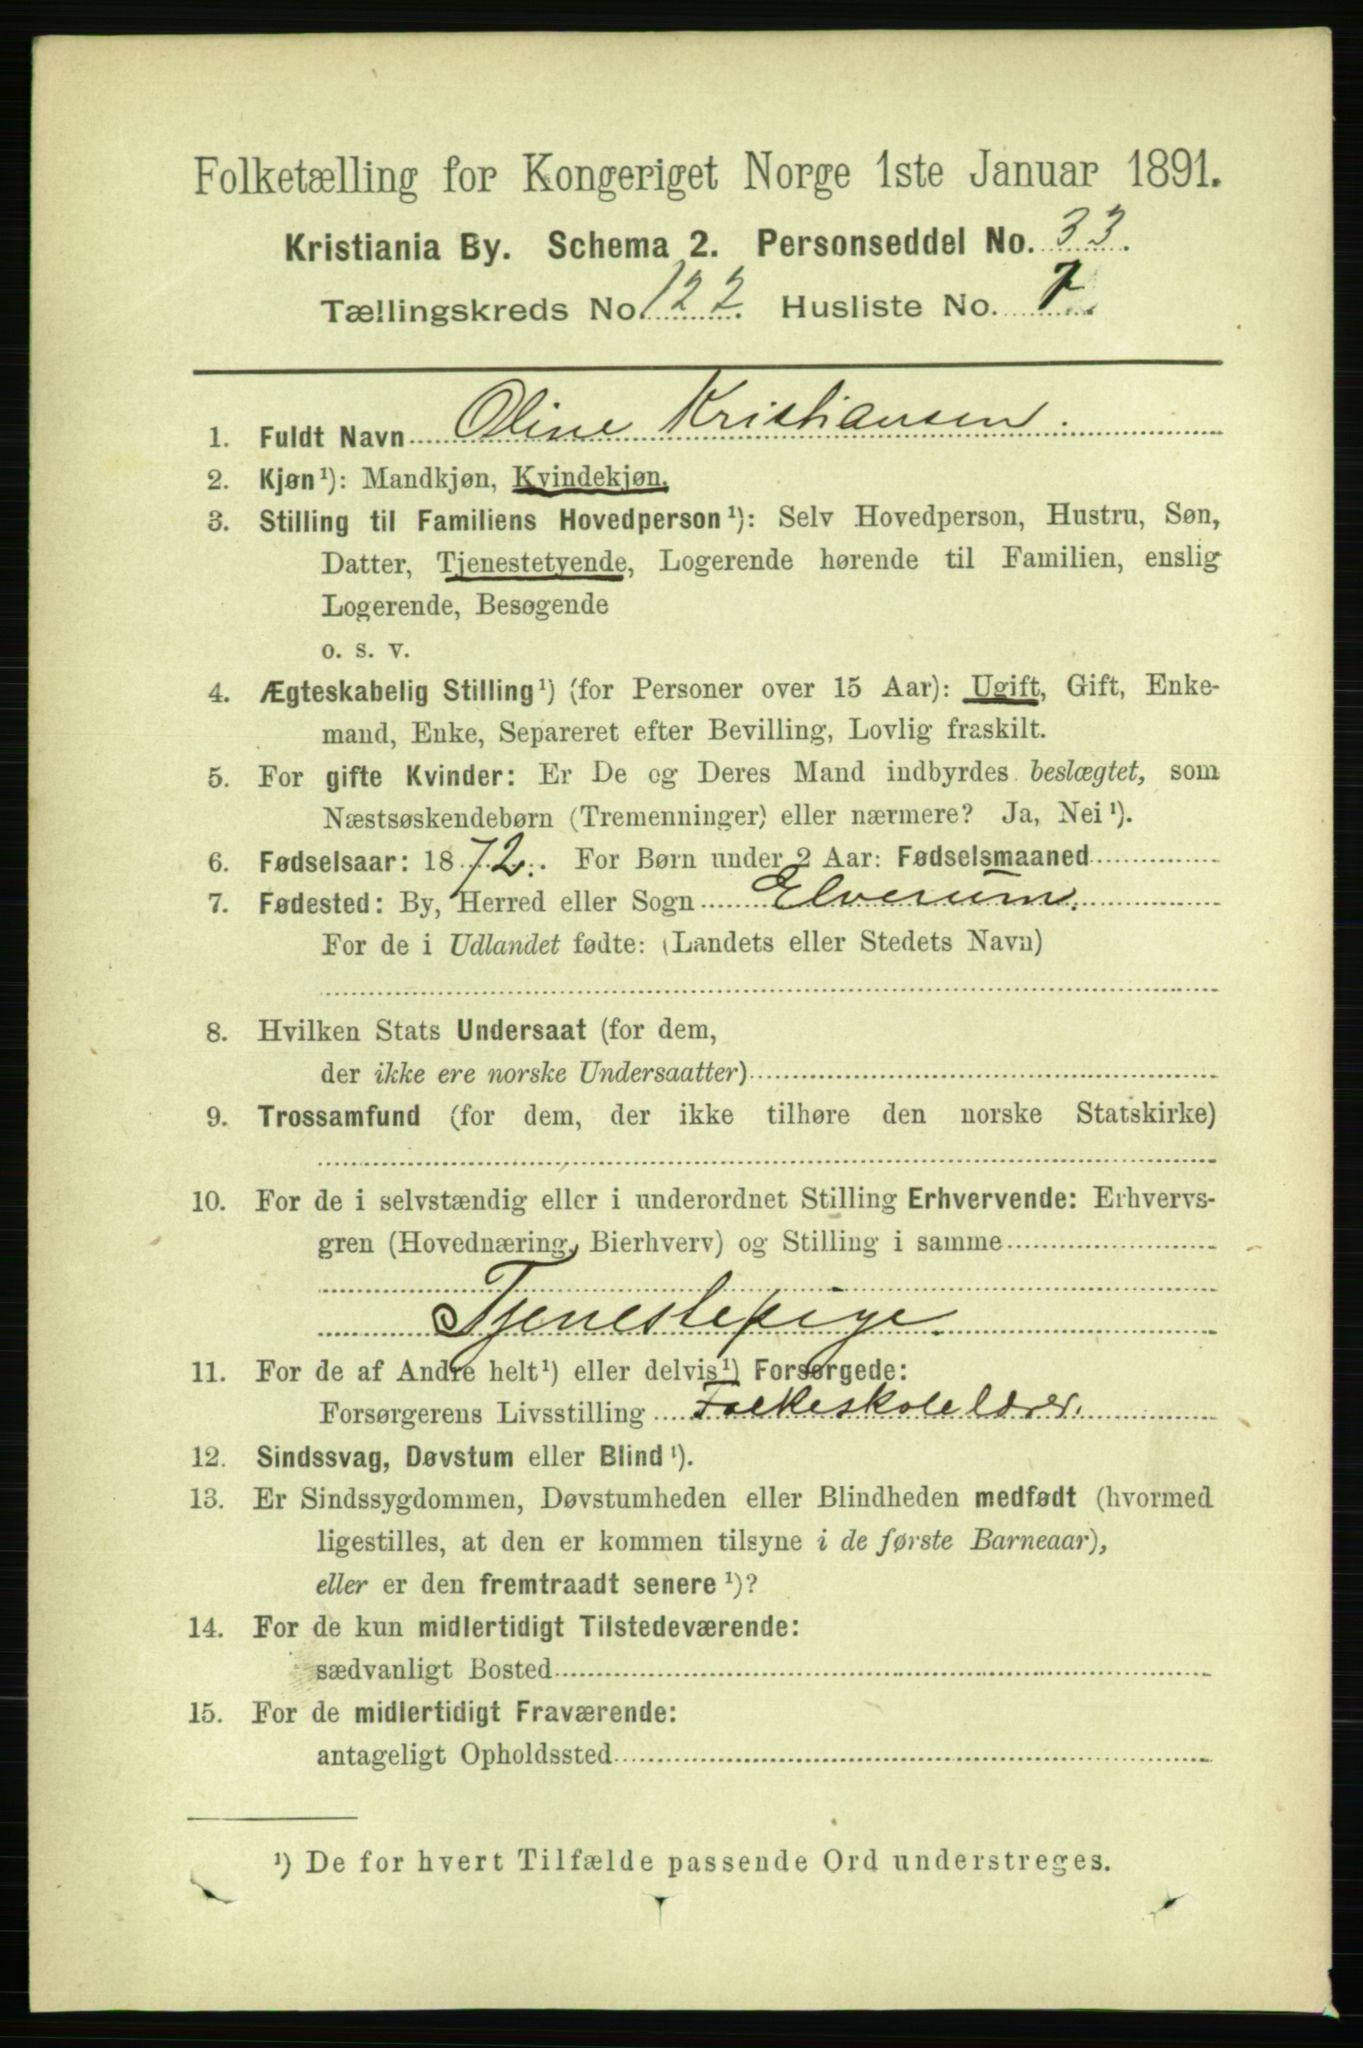 Folketælling for Kongeriget Norge 1ste Januar 1891.
Kristiania By. Schema 2. Personseddel No. 33.
Tællingskreds No. 122. Husliste No. 7.
1. Fuldt Navn Oline Kristiansen.
2. Kjøn¹): Mandkjøn, Kvindekjøn.
3. Stilling til Familiens Hovedperson¹): Selv Hovedperson, Hustru, Søn,
Datter, Tjenestetyende, Logerende hørende til Familien, enslig
Logerende, Besøgende
o. s. v.
4. Ægteskabelig Stilling¹) (for Personer over 15 Aar): Ugift, Gift, Enke-
mand, Enke, Separeret efter Bevilling, Lovlig fraskilt.
5. For gifte Kvinder: Er De og Deres Mand indbyrdes beslægtet, som
Næstsøskendebørn (Tremenninger) eller nærmere? Ja, Nei¹).
6. Fødselsaar: 1872. For Børn under 2 Aar: Fødselsmaaned
7. Fødested: By, Herred eller Sogn Elverum.
For de i Udlandet fødte: (Landets eller Stedets Navn)
8. Hvilken Stats Undersaat (for dem,
der ikke ere norske Undersaatter)
9. Trossamfund (for dem, der ikke tilhøre den norske Statskirke)
10. For de i selvstændig eller i underordnet Stilling Erhvervende: Erhvervs-
gren (Hovednæring, Bierhverv) og Stilling i samme
Tjenestepige.
11. For de af Andre helt¹) eller delvis¹) Forsørgede:
Forsørgerens Livsstilling Folkeskolelærer.
12. Sindssvag, Døvstum eller Blind¹).
13. Er Sindssygdommen, Døvstumheden eller Blindheden medfødt (hvormed
ligestilles, at den er kommen tilsyne i de første Barneaar),
eller er den fremtraadt senere¹)?
14. For de kun midlertidigt Tilstedeværende:
sædvanligt Bosted
15. For de midlertidigt Fraværende:
antageligt Opholdssted
¹) De for hvert Tilfælde passende Ord understreges.